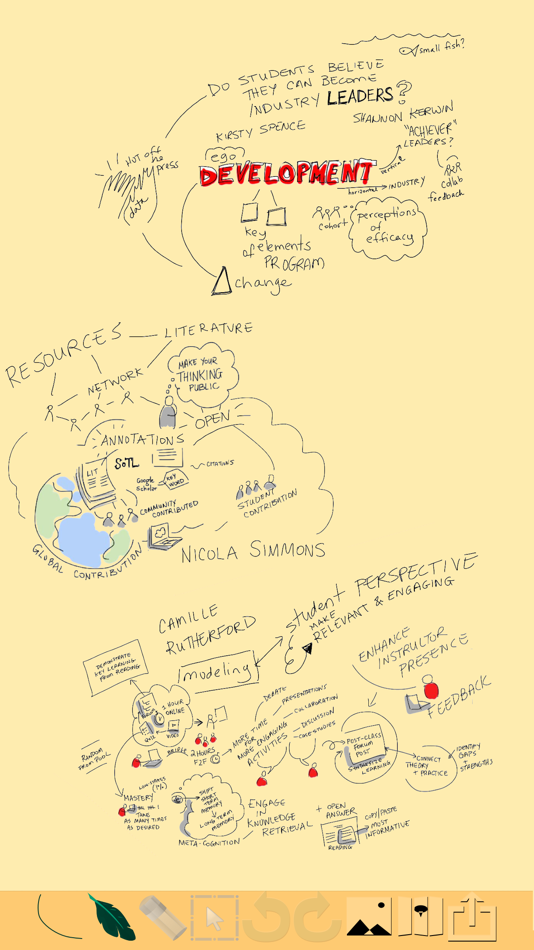 small fish?
DO STUDENTS BELIEVE
THEY CAN BECOME
INDUSTRY LEADERS?
KIRSTY SPENCE
SHANNON KERWIN
"ACHIEVER"
LEADERS?
ego
DEVELOPMENT
vertical
horizontal → INDUSTRY
collab
feedback
HOT off
the
press
data
cohort
perceptions
of
efficacy
key
elements
of
PROGRAM
change
RESOURCES
LITERATURE
NETWORK
MAKE YOUR
THINKING
PUBLIC
OPEN
ANNOTATIONS
LIT
SoTL
CITATIONS
Google
Scholar
KEY
WORD
COMMUNITY
CONTRIBUTED
STUDENT
CONTRIBUTION
GLOBAL CONTRIBUTION
NICOLA SIMMONS
CAMILLE
RUTHERFORD
student PERSPECTIVE
MAKE
RELEVANT & ENGAGING
modeling
ENHANCE
INSTRUCTOR
PRESENCE
FEEDBACK
DEMONSTRATE
KEY LEARNING
FROM READING
1 HOUR
ONLINE
QUIZ
VIDEO
2 HOURS
F2F
MORE TIME
FOR
MORE ENGAGING
ACTIVITIES
DEBATE
PRESENTATIONS
COLLABORATION
DISCUSSION
CASE STUDIES
POST-CLASS
FORUM
POST
LEARNING
CONNECT
THEORY
+ PRACTICE
IDENTIFY
GAPS
+
STRENGTHS
RANDOM
FROM POOL
LOW-STAKES
MASTERY
TAKE
AS MANY TIMES
AS DESIRED
SHIFT
SHORT
TERM
MEMORY
LONG TERM
MEMORY
META-COGNITION
ENGAGE
IN
KNOWLEDGE
RETRIEVAL
+ OPEN
ANSWER
READING
COPY/PASTE
MOST
INFORMATIVE